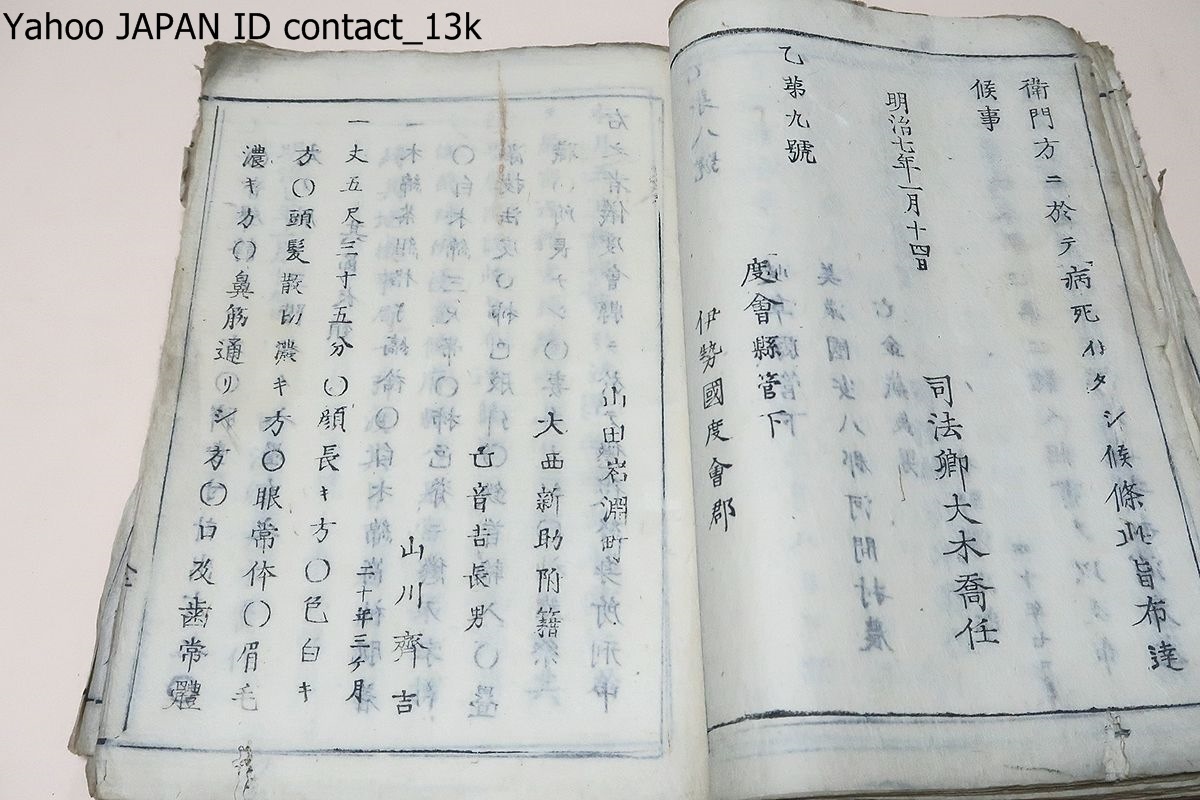 Yahoo JAPAN ID contact_13k
衛門方ニ於テ病死イタシ候條此旨布達
候事
明治七年一月十四日
司法卿大木喬任
乙第九號
度會縣管下
伊勢國度會郡
山田岩淵町
大西新助附籍
亡音吉長男
山川齊吉
二十年三ヶ月
一丈五尺三寸五分〇顔長キ方〇色白キ
方〇頭髪散切濃キ方〇眼常体〇眉毛
濃キ方〇鼻筋通リシ方〇口及齒常體